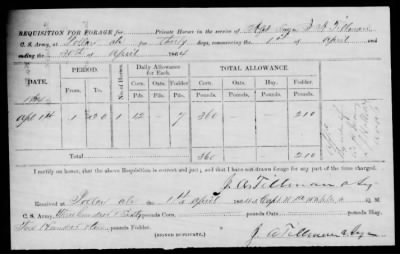 REQUISITION FOR FORAGE for Private Horses in the service of Asst Surgn J. A. Tillman
C. S. Army, at Pollard ala for Thirty days, commencing the 1st of april and
ending the 30th of april 1864
DATE.
PERIOD.
No. of Horses
Daily Allowance for Each.
TOTAL ALLOWANCE.
From.
To.
Corn.
Oats.
Fodder.
Corn.
Oats.
Fodder.
Pds.
Pds.
Pds.
Pounds.
Pounds.
Pounds.
1864
apl 1st
1
30
1
12
7
360
210
Total
360
210
I certify on honor, that the above Requisition is correct and just, and that I have not drawn forage for any part of the time charged.
J. A. Tillman a Sg
Received at Pollard ala 1st april 1864 of Capt
Q. M.
C. S. Army, Three hundred & Sixty pounds Corn, pounds Oats, pounds Hay,
Two Hundred & ten pounds Fodder
[SIGNED DUPLICATE.]
J. A. Tillman